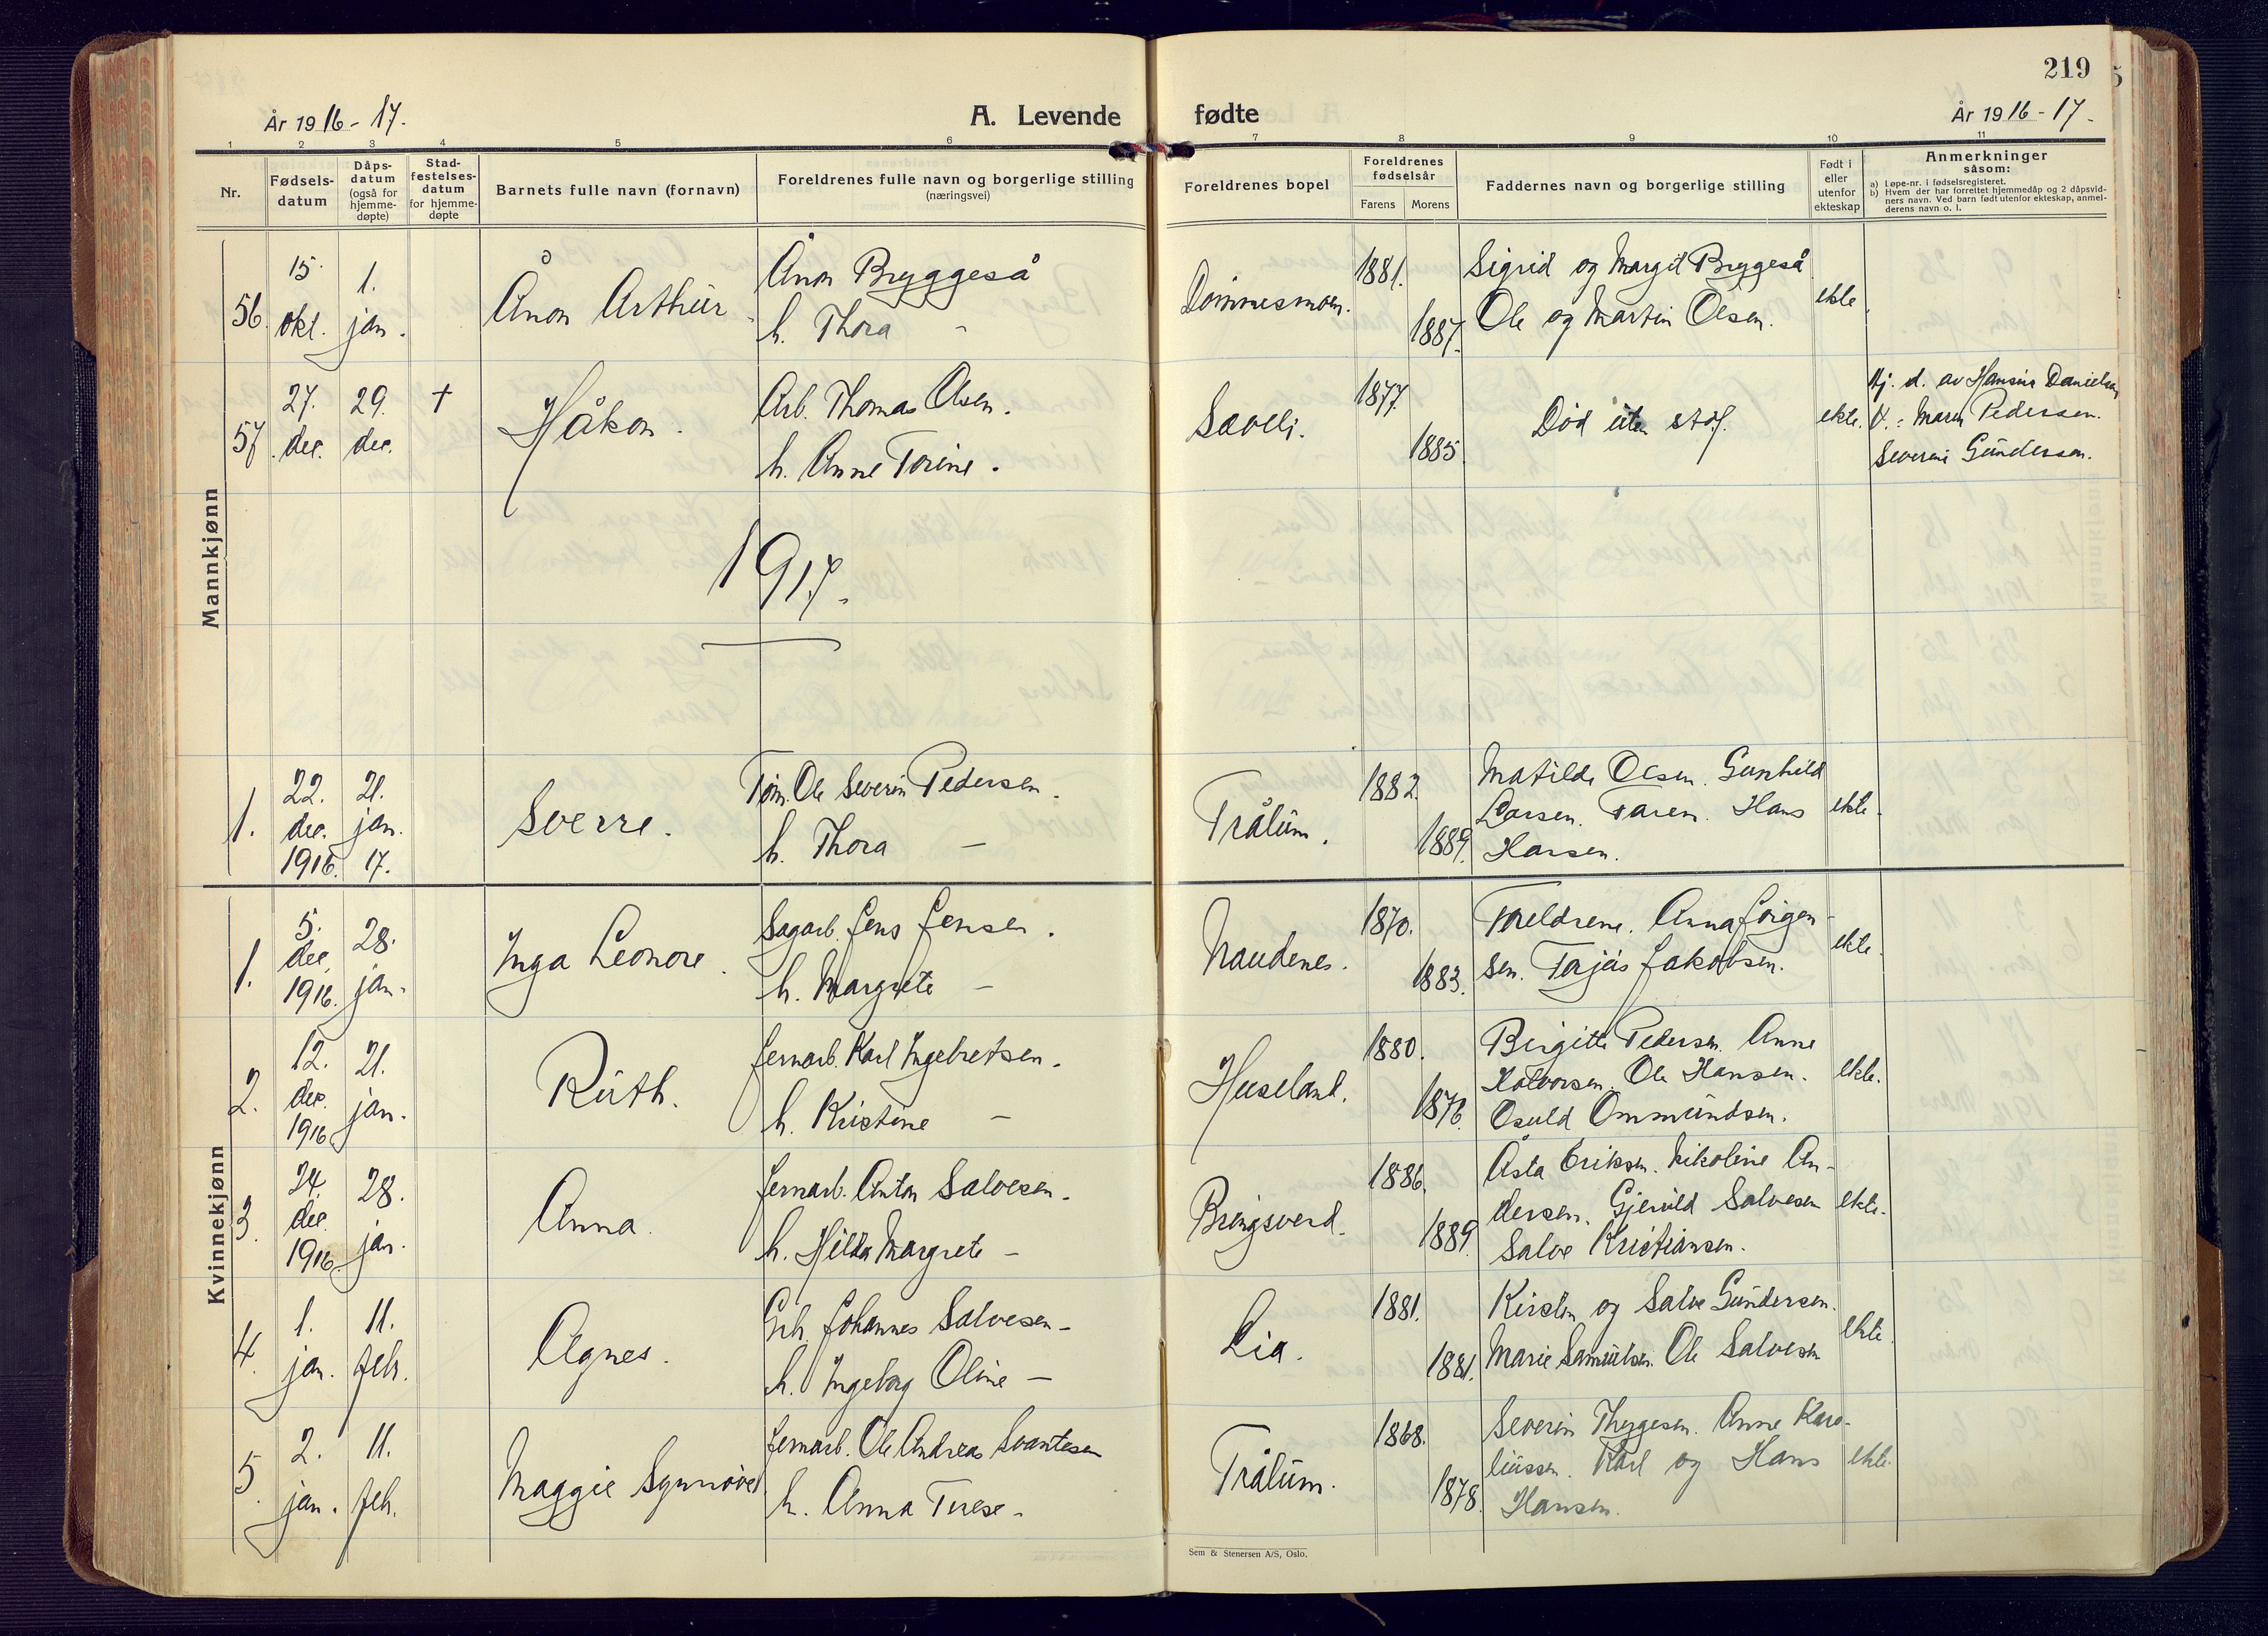 219
År 1916-17.
A. Levende fødte
År 1916-17-
1 2 3 4 5 6 7 8 9 10 11
Nr.
Fødsels-
datum
Dåps-
datum
(også for
hjemme-
døpte)
Stad-
festelses-
datum
for hjemme-
døpte
Barnets fulle navn (fornavn)
Foreldrenes fulle navn og borgerlige stilling
(næringsvei)
Foreldrenes bopel
Foreldrenes
fødselsår
Farens Morens
Faddernes navn og borgerlige stilling
Født i
eller
utenfor
ekteskap
Anmerkninger
såsom:
a) Løpe-nr. i fødselsregisteret.
b) Hvem der har forrettet hjemmedåp og 2 dåpsvid-
ners navn. Ved barn født utenfor ekteskap, anmel-
derens navn o. l.
Mannkjønn
56. 15. okt. 1. jan. Ånon Arthur Ånon Bryggeså
h. Thora -
Dømmesmoen. 1881. 1887.
Sigrid og Margit Bryggeså
Ole og Martin Olsen. ekte.
57. 27. dec. 29. dec. † Håkon. Arb. Thomas Olsen.
h. Anne Torine.
Sævli. 1877. 1885.
Død uten stdf. ekte.
Hj. d. av Hansine Danielsen
V.: Maren Pedersen.
Severine Gundersen.
1917.
1. 22. dec. 1916. 21. jan. 17. Sverre. Tøm. Ole Severin Pedersen.
h. Thora -
Trålum. 1882. 1889.
Matilde Olsen. Gunhild
Larsen. Faren. Hans
Hansen. ekte.
Kvinnekjønn
1. 5. dec. 1916. 28. jan. Inga Leonore. Sagarb. Jens Jensen.
h. Margrete -
Naudenes. 1870. 1883.
Foreldrene. Anna Jörgen-
sen. Terjus Jakobsen. ekte.
2. 12. dec. 1916 21. jan. Ruth. Jernarb. Karl Ingebretsen.
h. Kristine -
Huseland. 1880. 1876.
Birgitte Pedersen. Anne
Halvorsen. Ole Hansen.
Osuld Ommundsen. ekte.
3. 24. dec. 1916. 28. jan. Anna. Jernarb. Anton Salvesen.
h. Hilda Margrete -
Bringsverd. 1886. 1889.
Åsta Eriksen. Nikoline An-
dersen. Gjeruld Salvesen
Salve Kristiansen. ekte.
4. 1. jan. 11. feb. Agnes. Grb. Johannes Salvesen -
h. Ingeborg Oline -
Lia. 1881. 1881.
Kirsten og Salve Gundersen.
Marie Samuelsen. Ole Salvesen ekte.
5. 2. jan. 11. feb. Maggie Synnøve Jernarb. Ole Andreas Svantesen
h. Anna Terese -
Trålum. 1868. 1878.
Severin Thygesen. Anne Karo-
liussen. Karl og Hans
Hansen. ekte.
Sem & Stenersen A/S, Oslo.